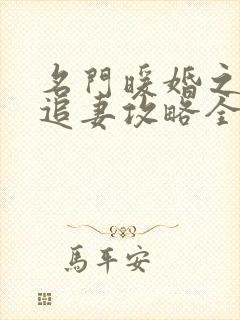 名門暖婚之
追妻攻略全
馬平安